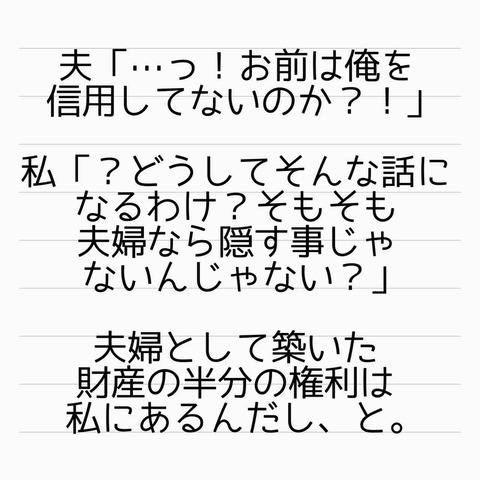 夫「…っ！お前は俺を
信用してないのか？！」
私「？どうしてそんな話に
なるわけ？そもそも
夫婦なら隠す事じゃ
ないんじゃない？」
夫婦として築いた
財産の半分の権利は
私にあるんだし、と。